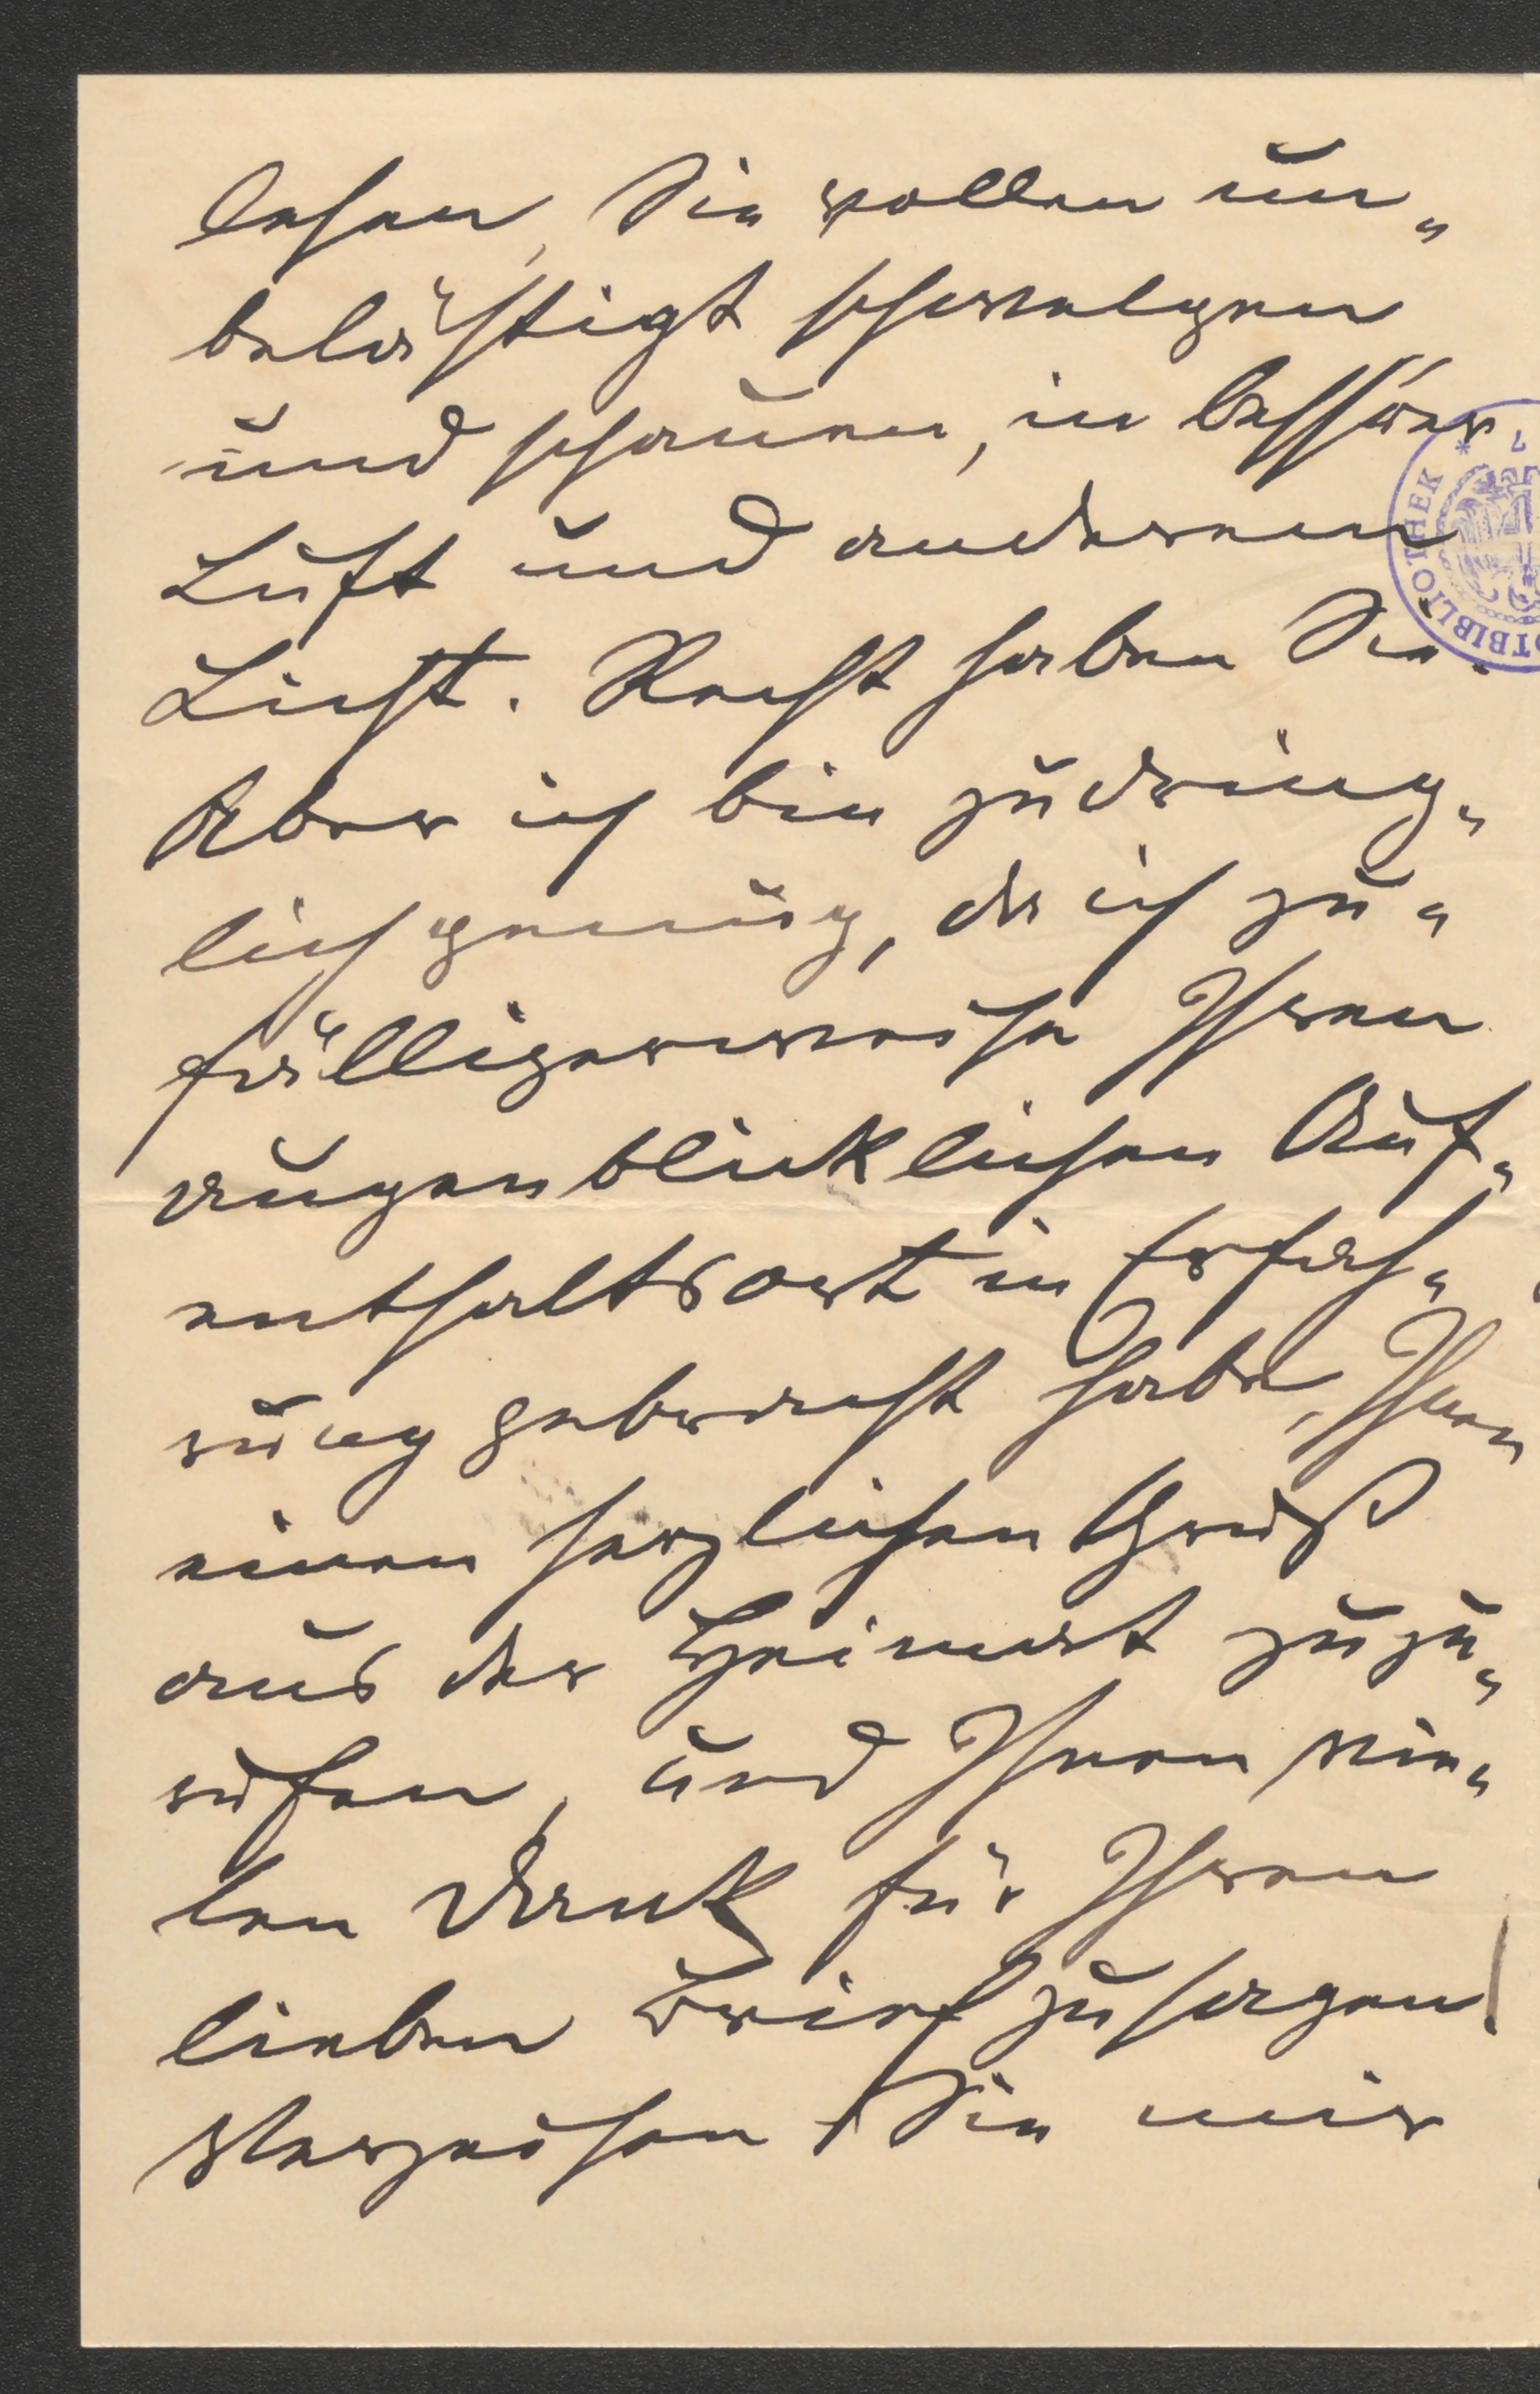 lesen, Sie wollen un„
belästigt schwelgen
und schauen, in besserer
Luft und anderem
Licht. Recht haben Sie.
Aber ich bin zudring„
lich genug, da ich zu„
fälligerweise Ihren
augenblicklichen Auf„
enthaltsort in Erfah„
rung gebracht habe, Ihnen
einen herzlichen Gruß
aus der Heimat zuzu„
rufen, und Ihnen vie„
len Dank für Ihren
lieben Brief zu sagen.
Verzeihen Sie mir